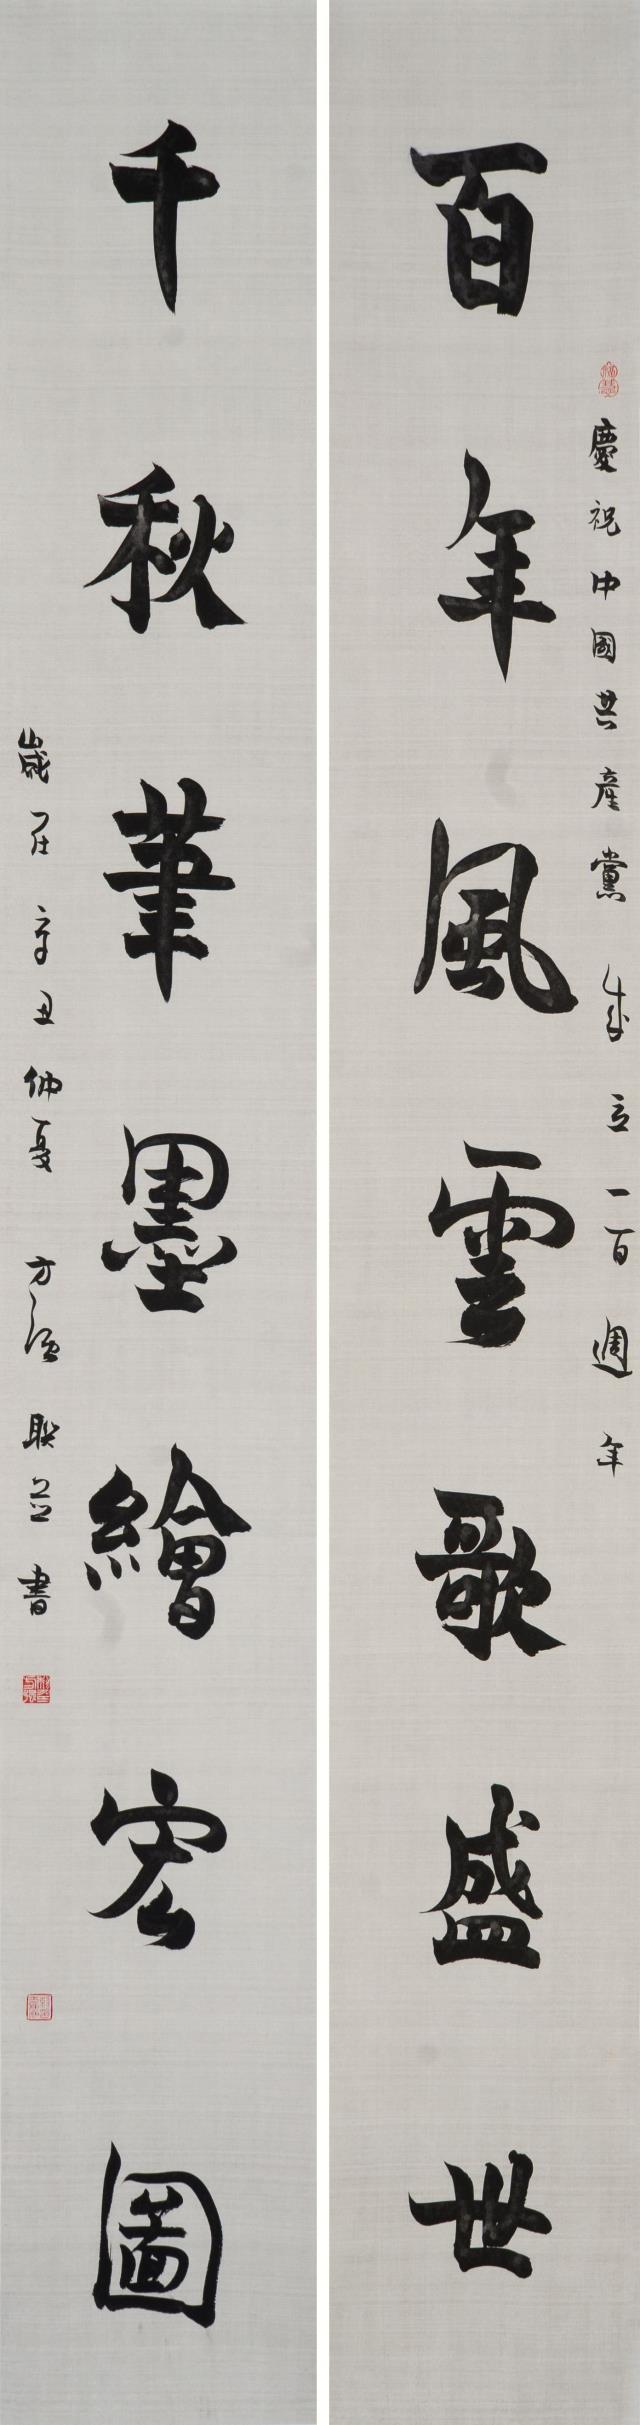 百年風雲歌盛世
慶祝中國共產黨成立一百週年
千秋筆墨繪宏圖
歲在辛丑仲夏方強聯并書